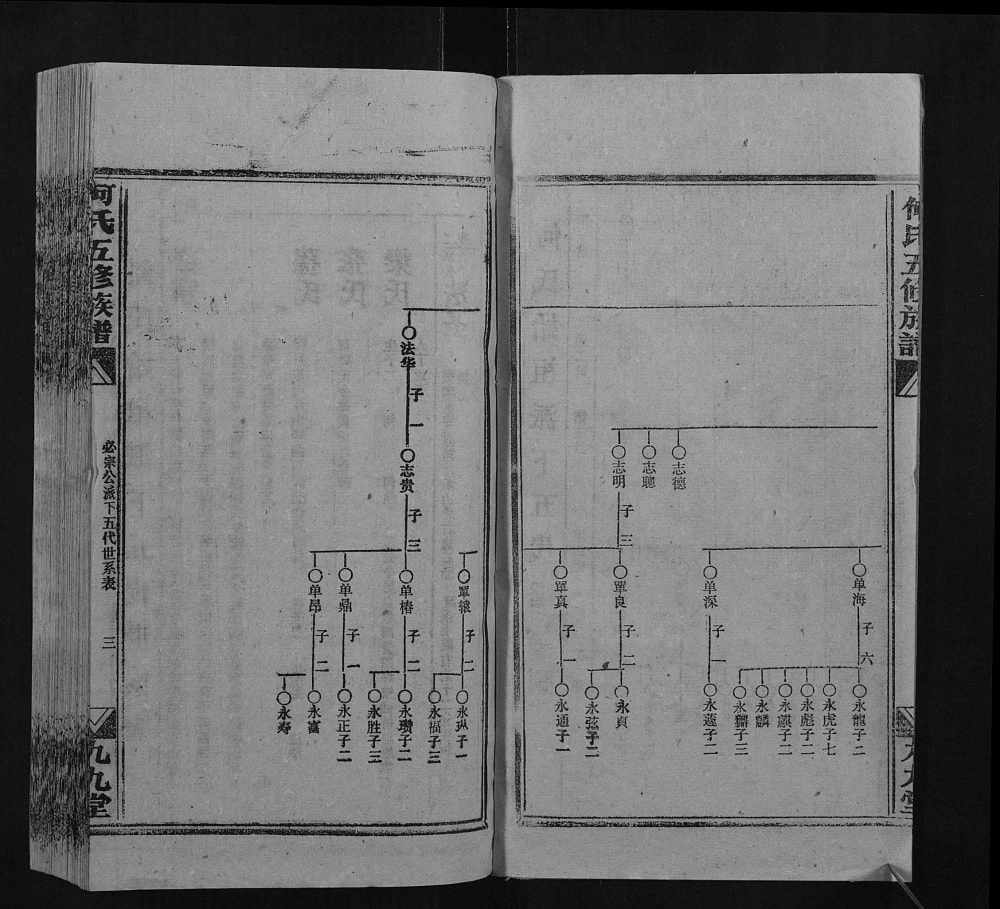 何氏五修族譜
九九堂
志德
志聰
志明
子三
单海
子六
单深
子一
單良
子二
單真
子一
永龍子二
永虎子七
永彪子二
永麟
永貞
永弦子二
永通子一
法华
子一
志贵
子三
單轅
子二
单椿
子二
单鼎
子一
单昂
子二
永福子三
永瓚子二
永胜子三
永正子二
永富
永寿
何氏五修族谱
必宗公派下五代世系表
三
九九堂